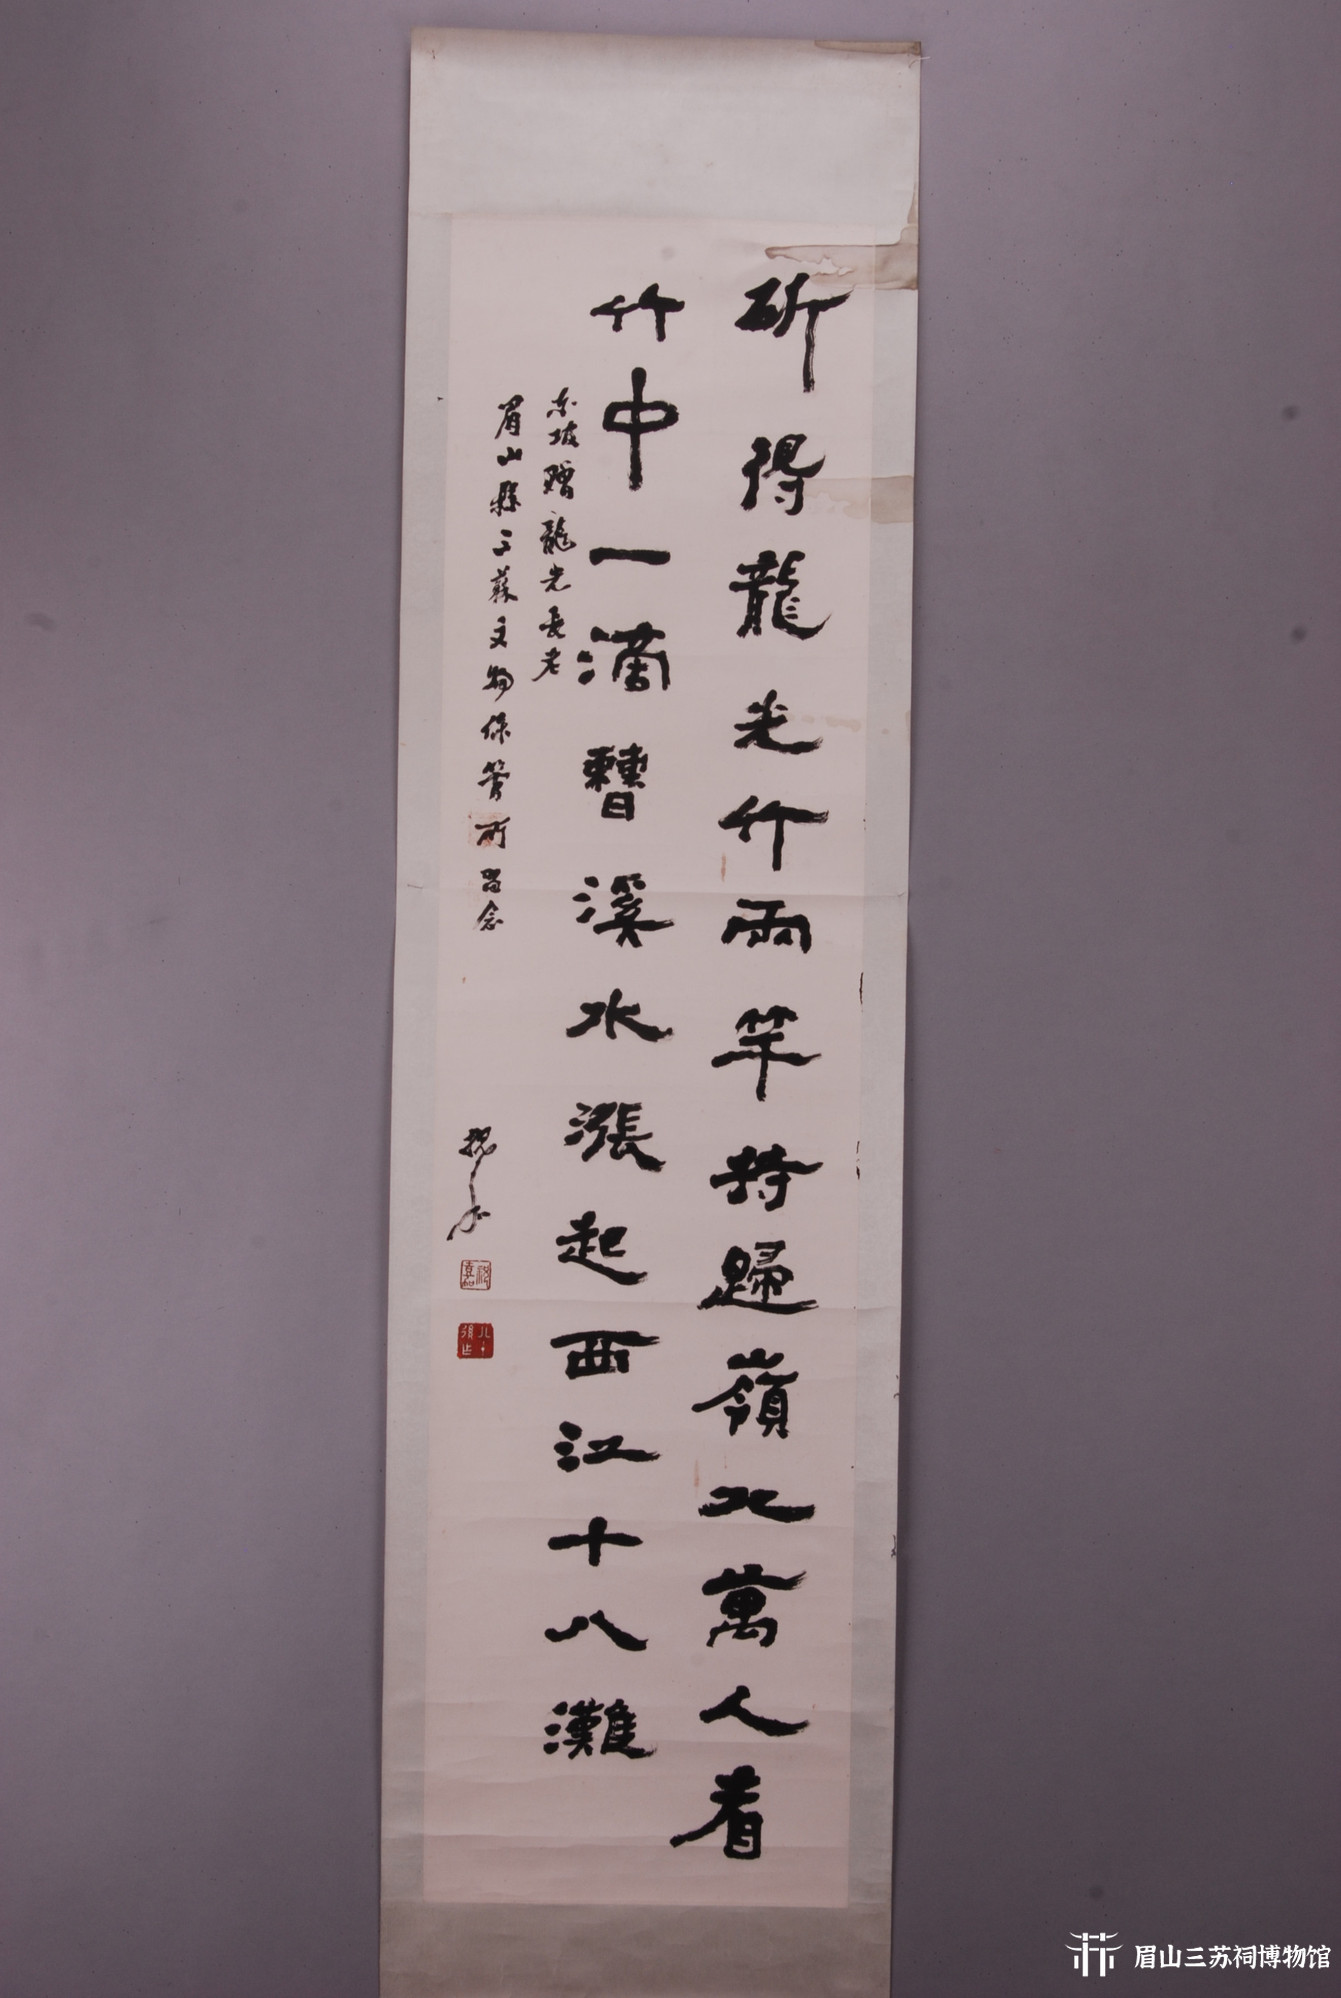 斫得龍光竹兩竿持歸嶺北萬人看
竹中一滴曹溪水漲起西江十八灘
东坡贈龍光長老
眉山縣三蘇文物保管所留念
眉山三苏祠博物馆